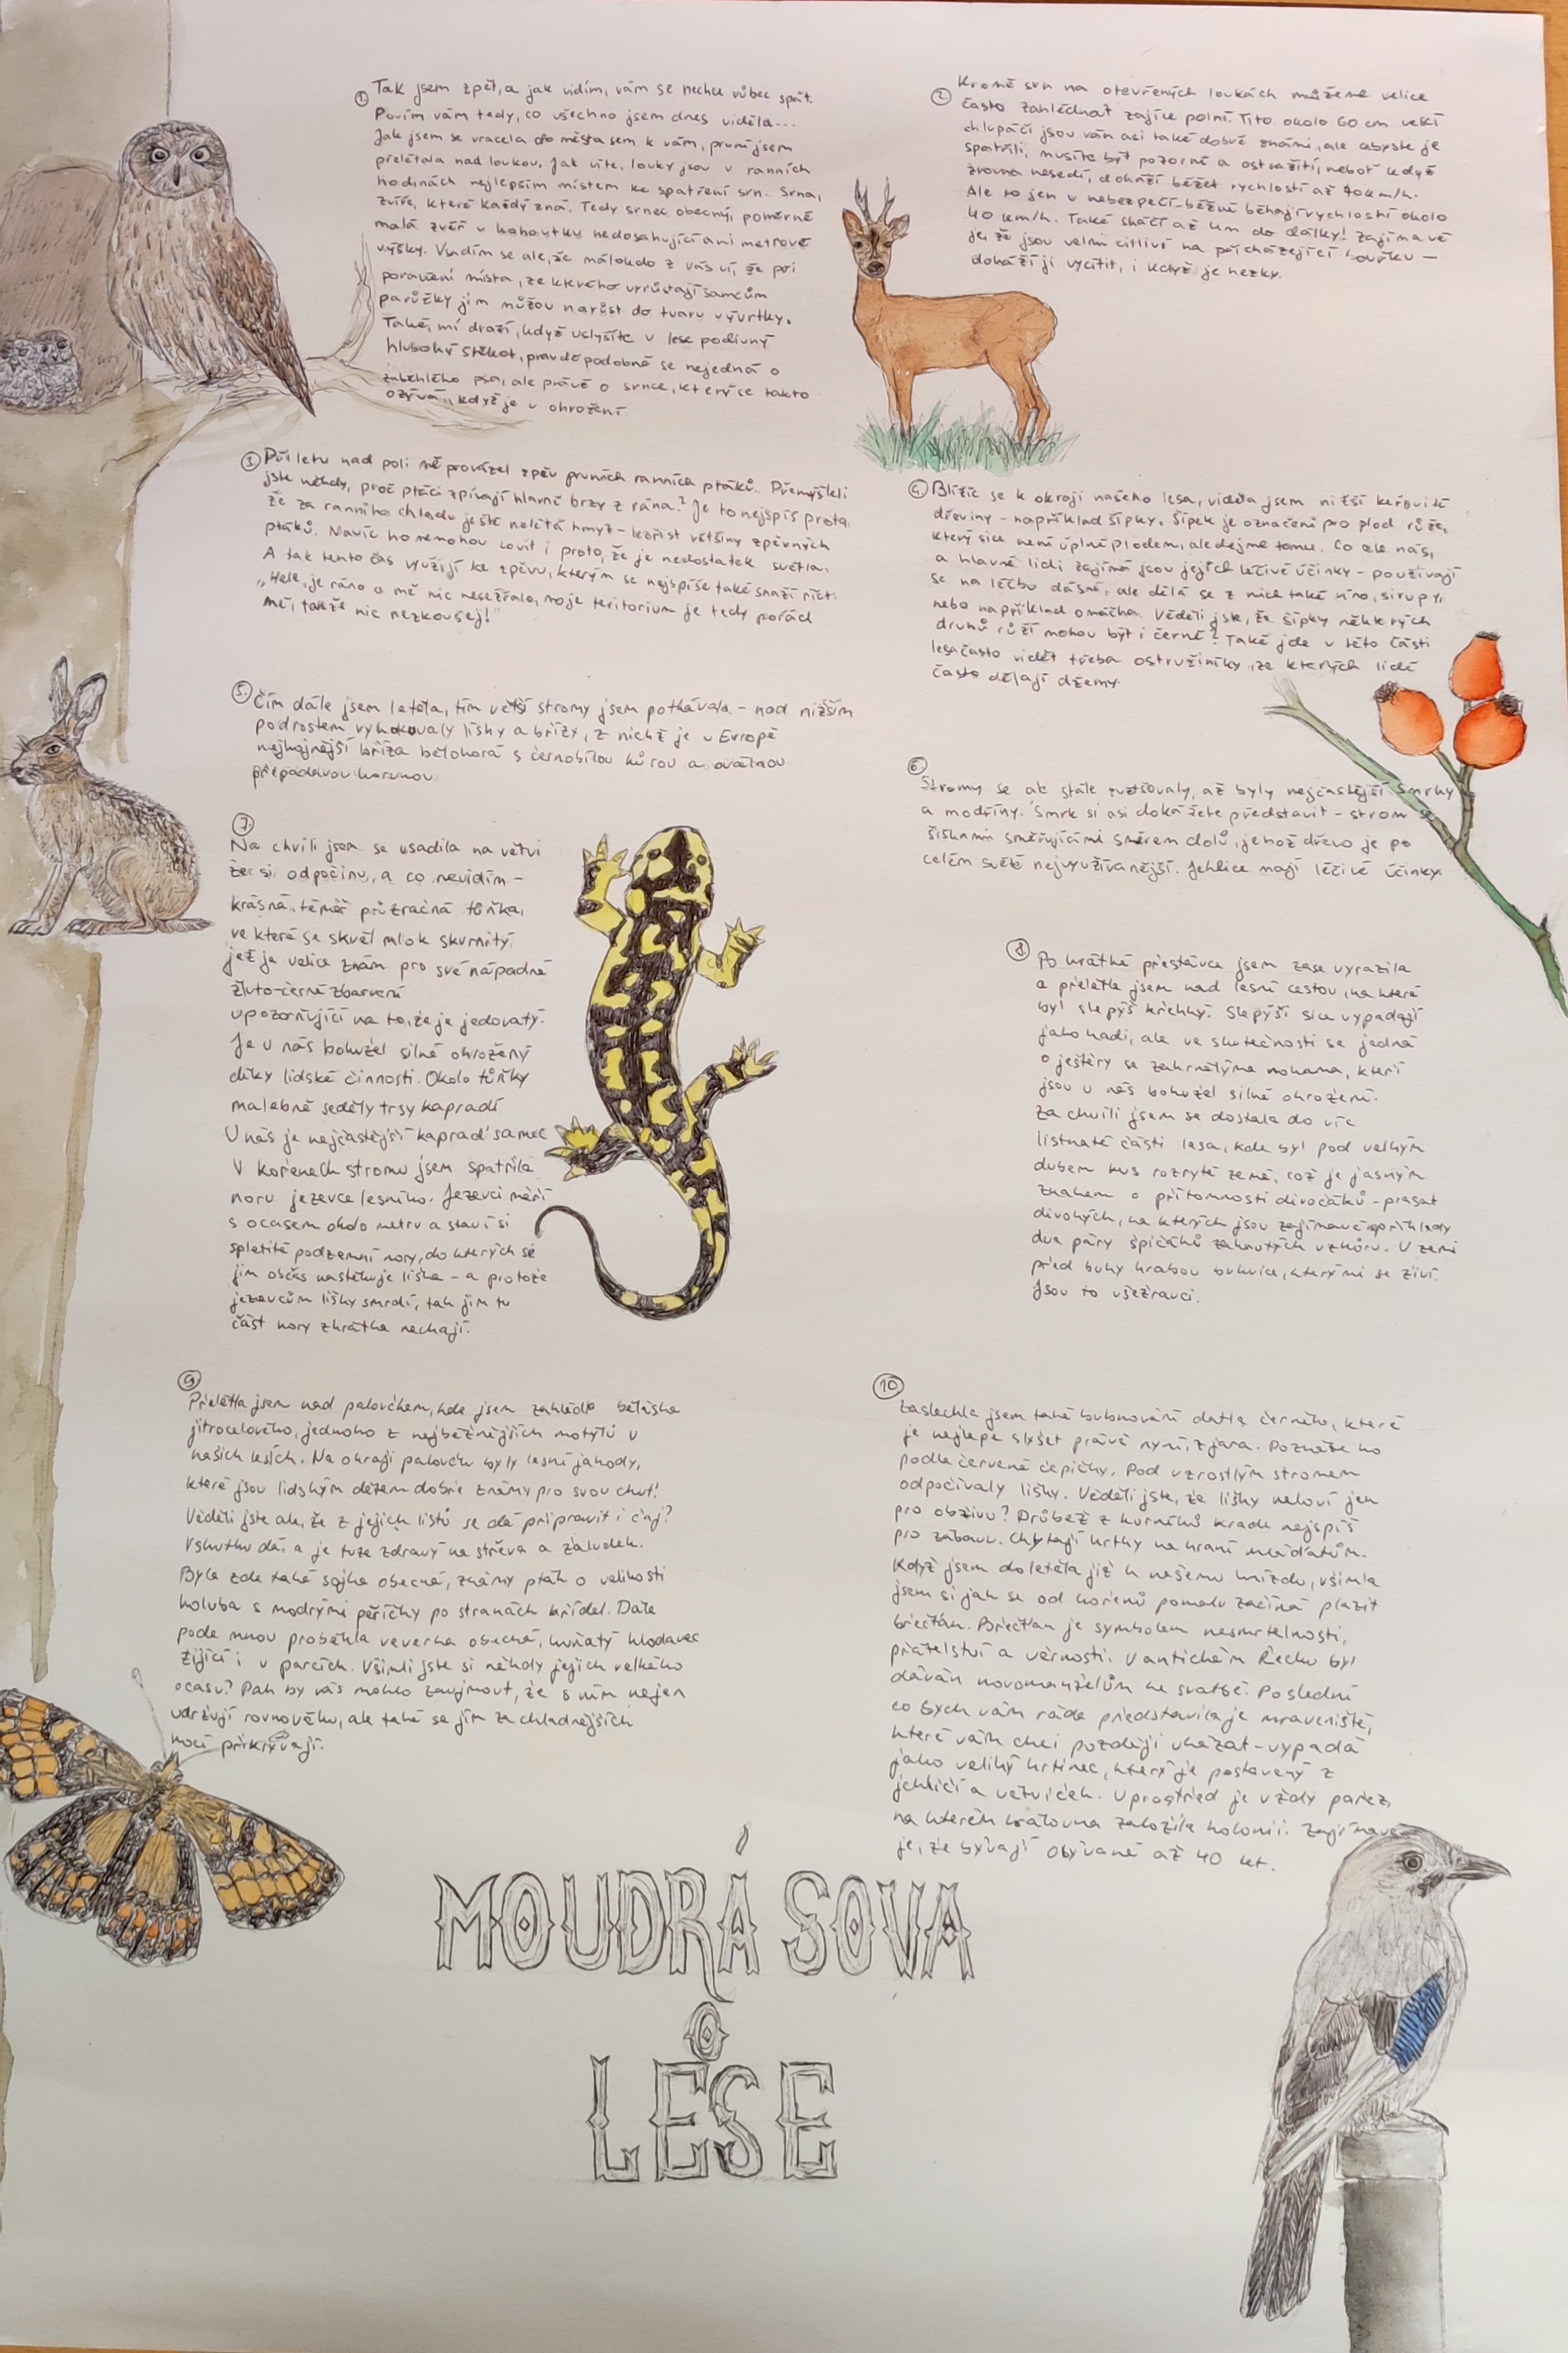 1. Tak jsem zpět, a jak vidím, vám se nechce vůbec spát.
Povím vám tedy, co všechno jsem dnes viděla...
Jak jsem se vracela do města sem k vám, první jsem
přelétala nad loukou. Jak víte, louky jsou v ranních
hodinách nejlepším místem ke spatření srn. Srna,
zvíře, které každý zná. Tedy srnec obecný, poměrně
malá zvěř v kohoutku nedosahující ani metrové
výšky. Vsadím se ale, že málokdo z vás ví, že při
poranění místa, ze kterého vyrůstají samcům
parůžky jim můžou narůst do tvaru vývrtky.
Také, mí drazí, když uslyšíte v lese podivný
hluboký štěkot, pravděpodobně se nejedná o
zaběhlého psa, ale právě o srnce, který se takto
ozývá, když je v ohrožení.
2. Kromě srn na otevřených loukách můžeme velice
často zahlédnout zajíce polní. Tito okolo 60 cm velcí
chlupáči jsou vám asi také dobře známí, ale abyste je
spatřili, musíte být pozorné a ostražití, neboť když
zrovna nesedí, dokáží běžet rychlostí až 70 km/h.
Ale to jen v nebezpečí - běžně běhají rychlostí okolo
40 km/h. Také skáčí až 4m do dálky! Zajímavé
je, že jsou velmi citliví na přicházející bouřku -
dokáží ji vycítit, i když je hezky.
3. Při letu nad poli mě provázel zpěv prvních ranních ptáků. Přemýšleli
jste někdy, proč ptáci zpívají hlavně brzy z rána? Je to nejspíš proto,
že za ranního chladu ještě nelétá hmyz - kořist většiny zpěvných
ptáků. Navíc ho nemohou lovit i proto, že je nedostatek světla.
A tak tento čas využijí ke zpěvu, kterým se nejspíše také snaží říct:
"Hele, je ráno a mě nic nesežralo, moje teritorium je tedy pořád
mé, takže nic nezkoušej!"
4. Blížíc se k okraji našeho lesa, viděla jsem nižší keřovité
dřeviny - například šípky. Šípek je označení pro plod růže,
který sice není úplně plodem, ale dejme tomu. Co ale nás,
a hlavně lidi zajímá jsou jejich léčivé účinky - používají
se na léčbu dásně, ale dělá se z nich také víno, sirupy,
nebo například omáčka. Věděli jste, že šípky některých
druhů růží mohou být i černé? Také jde v této části
lesa často vidět třeba ostružiníky, ze kterých lidé
často dělají džemy.
5. Čím dále jsem letěla, tím větší stromy jsem potkávala - nad nižším
podrostem vykukovaly lísky a břízy, z nichž je v Evropě
nejhojnější bříza bělokorá s černobílou kůrou a oválnou
přepadavou korunou.
6. Stromy se ale stále zvětšovaly, až byly nejčastější smrky
a modříny. Smrk si asi dokážete představit - strom s
šiškami směřujícími směrem dolů, jehož dřevo je po
celém světě nejvyužívanější. Jehlice mají léčivé účinky.
7. Na chvíli jsem se usadila na větvi
že si odpočinu, a co nevidím -
krásná, téměř průzračná tůňka,
ve které se skvěl mlok skvrnitý,
jež je velice znám pro své nápadné
žluto-černé zbarvení
upozorňující na to, že je jedovatý.
Je u nás bohužel silně ohrožený
díky lidské činnosti. Okolo tůňky
malebně seděly trsy kapradí
U nás je nejčastější kapraď samec
V kořenech stromu jsem spatřila
noru jezevce lesního. Jezevci měří
s ocasem okolo metru a staví si
spletité podzemní nory, do kterých se
jim občas nastěhuje liška - a protože
jezevcům lišky smrdí, tak jim tu
část nory zkrátka nechají.
8. Po krátké přestávce jsem zase vyrazila
a přelétla jsem nad lesní cestou, na které
byl slepýš křehký. Slepýši sice vypadají
jako hadi, ale ve skutečnosti se jedná
o ještěry se zakrnělýma nohama, kteří
jsou u nás bohužel silně ohrožení.
Za chvíli jsem se dostala do víc
listnaté části lesa, kde byl pod velkým
dubem kus rozryté země, což je jasným
znakem o přítomnosti divočáků - prasat
divokých, na kterých jsou zajímavé například
dva páry špičáků zahnutých vzhůru. V zemi
před buky hrabou bukvice, kterými se živí.
Jsou to všežravci.
9. Přelétla jsem nad paloučkem, kde jsem zahlédla běláska
jitrocelového, jednoho z nejběžnějších motýlů v
našich lesích. Na okraji paloučku byly lesní jahody,
které jsou lidským dětem dobře známy pro svou chuť.
Věděli jste ale, že z jejich listů se dá připravit i čaj?
Vskutku dá, a je tuze zdravý na střeva a žaludek.
Byla zde také sojka obecná, známý pták o velikosti
holuba s modrými peříčky po stranách křídel. Dále
pode mnou proběhla veverka obecná, kuňatý hlodavec
žijící i v parcích. Všimli jste si někdy jejich velkého
ocasu? Pak by vás mohlo zaujmout, že s ním nejen
udržují rovnováhu, ale také se jím za chladnějších
nocí přikrývají.
10. Zaslechla jsem také bubnování datla černého, které
je nejlépe slyšet právě nyní, z jara. Poznáte ho
podle červené čepičky. Pod vzrostlým stromem
odpočívaly lišky. Věděli jste, že lišky neloví jen
pro obživu? Drůbež z kurníků krade nejspíš
pro zábavu. Chytají krtky na hraní mláďatům.
Když jsem doletěla již k našemu hnízdu, všimla
jsem si jak se od kořenů pomalu začíná plazit
břečťan. Břečťan je symbolem nesmrtelnosti,
přátelství a věrnosti. V antickém Řecku byl
dáván novomanželům ke svatbě. Poslední
co bych vám ráda představila je mraveniště,
které vám chci později ukázat - vypadá
jako veliký krtinec, který je postavený z
jehličí a větviček. Uprostřed je vždy pařez,
na kterém královna založila kolonii. Zajímavé
je, že bývají obývané až 40 let.
MOUDRÁ SOVA
O
LESE